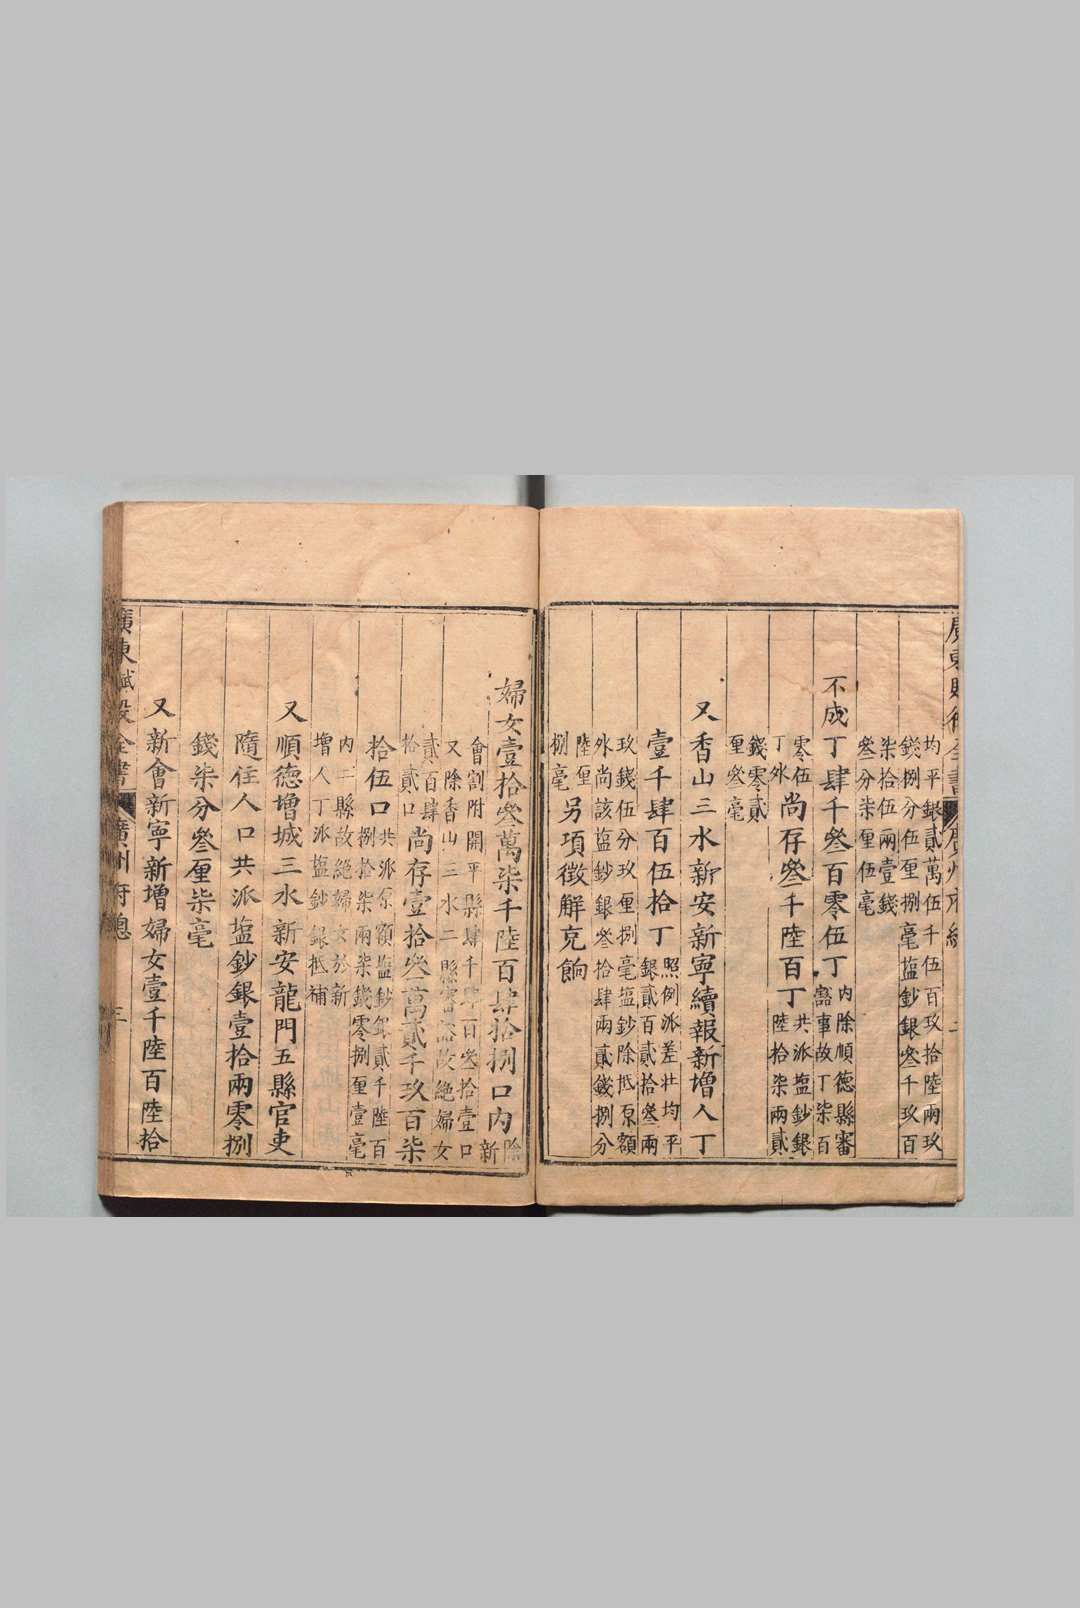 廣東賦役全書 廣州府總 二
均平銀貳萬伍千伍百玖拾陸兩玖
錢捌分伍厘捌毫塩鈔銀叄千玖百
柒拾伍兩壹錢
叄分柒厘伍毫
不成丁肆千叄百零伍丁
內除順德縣審
豁事故丁柒百
零伍
丁外
尚存叄千陸百丁
共派塩鈔銀
陸拾柒兩貳
錢零貳
厘叄毫
又香山三水新安新寧續報新增人丁
壹千肆百伍拾丁
照例派差壮均平
銀貳百貳拾叄兩
玖錢伍分玖厘捌毫塩鈔除抵原額
外尚該塩鈔銀叄拾肆兩貳錢捌分
陸厘
捌毫
另項徵解充餉
婦女壹拾叄萬柒千陸百肆拾捌口內
除
新
會割附開平縣肆千肆百叄拾壹口
又除香山三水二縣審豁故絕婦女
貳百肆
拾貳口
尚存壹拾叄萬貳千玖百柒
拾伍口
共派原額塩鈔銀貳千陸百
捌拾柒兩柒錢零捌厘壹毫
內二縣故絕婦女於新
增人丁派塩鈔銀抵補
又順德增城三水新安龍門五縣官吏
隨住人口共派塩鈔銀壹拾兩零捌
錢柒分叄厘柒毫
又新會新寧新增婦女壹千陸百陸拾
廣東賦役全書 廣州府總 三